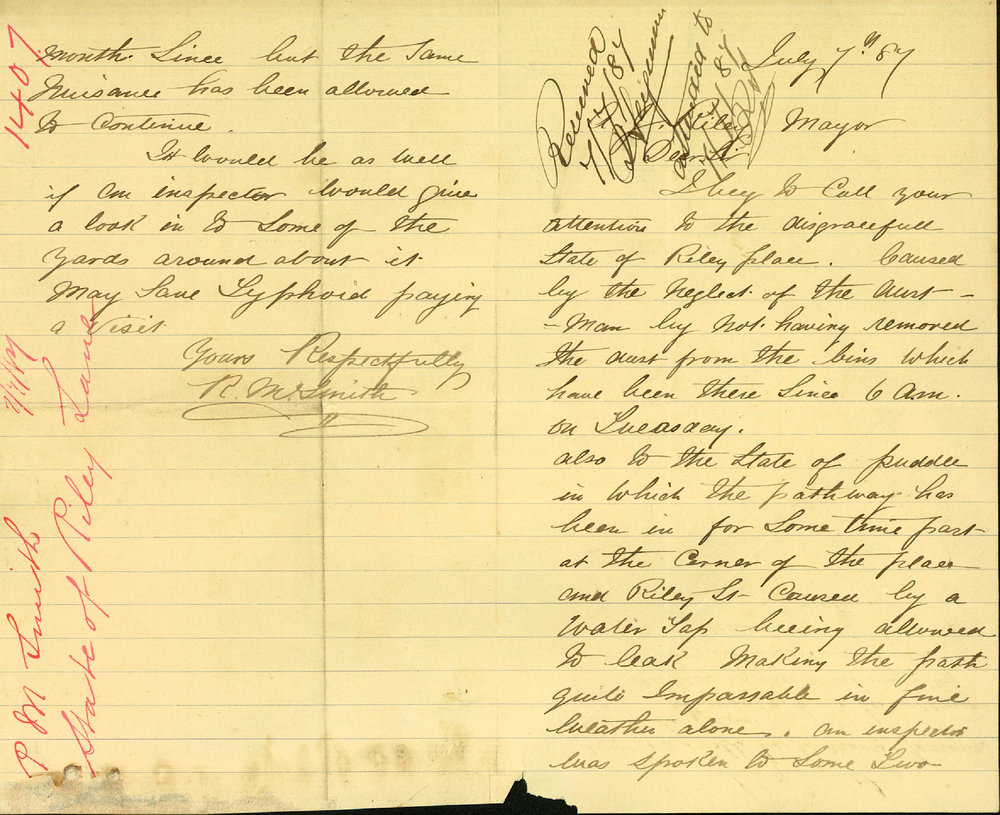 July 7th 87
Riley Mayor
Dear Sir
I beg to call your
attention to the disgracefull
State of Riley place. Caused
by the neglect of the dust-
-man by not having removed
the dust from the bins which
have been there since 6 am.
on Tueasday.
also to the State of puddle
in which the pathway has
been in for some time past
at the Corner of the place
and Riley St Caused by a
Water Tap beeing allowed
to leak Making the path
quite Impassable in fine
weather alone. an inspector
was spoken to some two
month. Since but the same
Nuisance has been allowed
to Continue.
It would be as well
if an inspector would give
a look in to some of the
yards around about it
May Save Typhoid paying
a visit
Yours Respectfully
R. McSmith
Received
7/7/87
attended to
/87
1407
7/7/87
R M Smith
State of Riley Lane